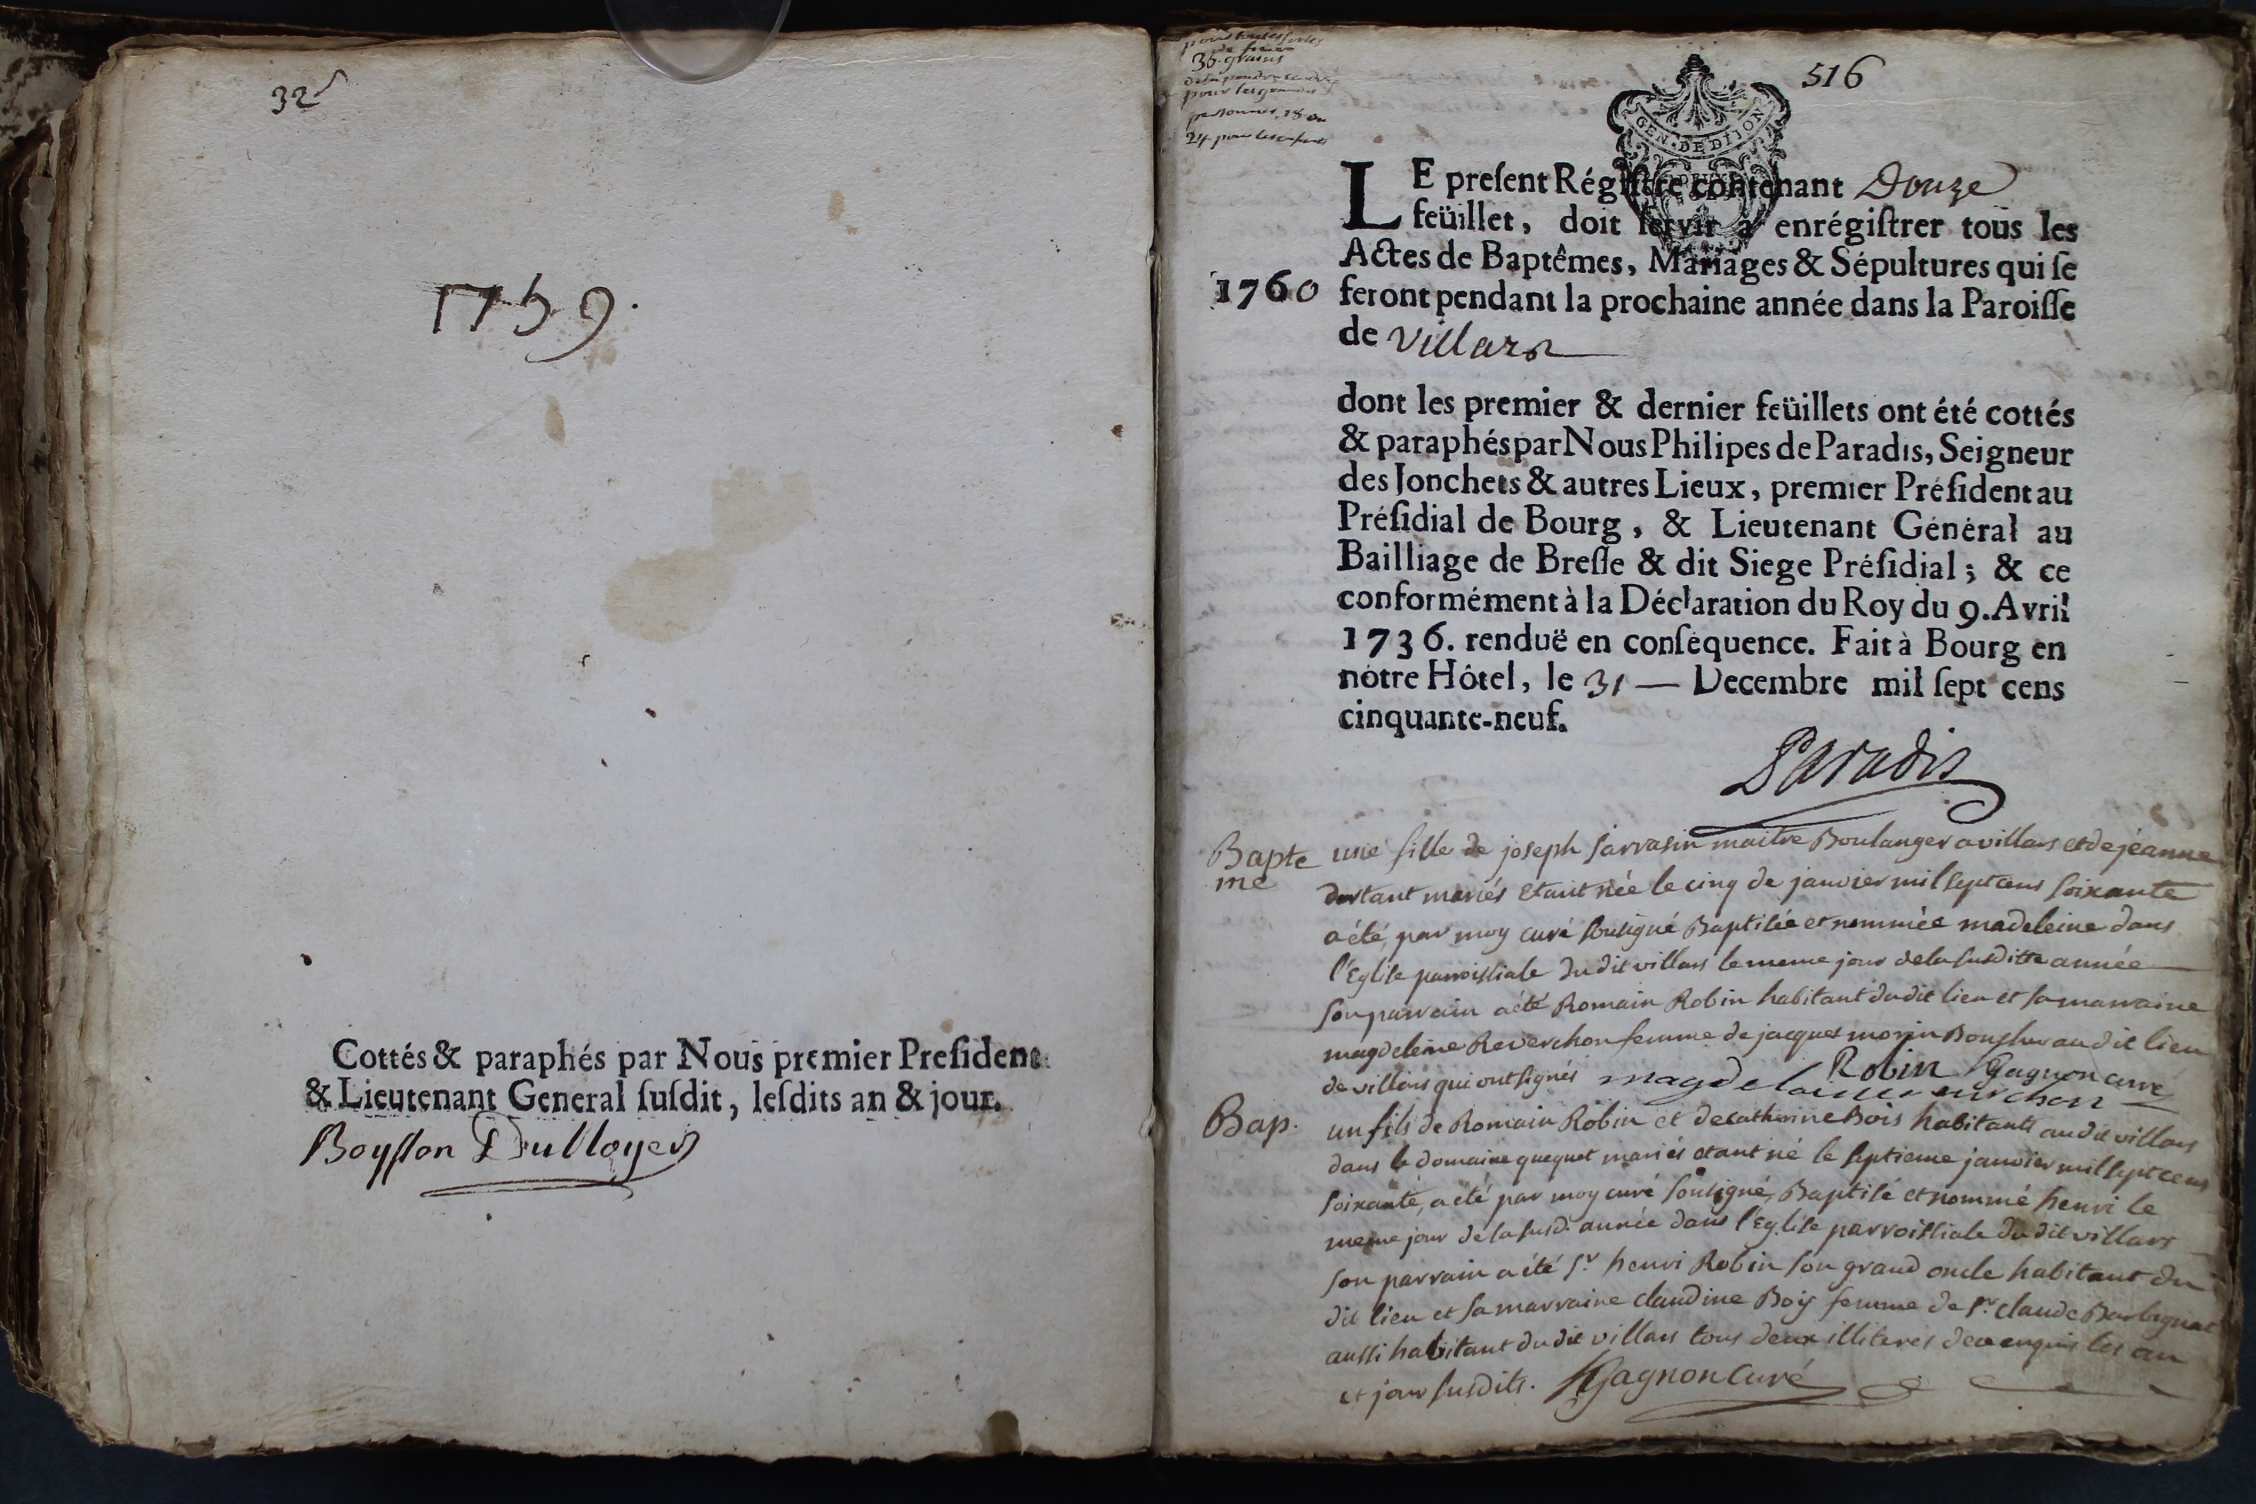 32
1759.
Cottés & paraphés par Nous premier Preſident
& Lieutenant General ſuſdit, leſdits an & jour.
36. grains
pour les grandes
personnes, 18 ou
24 pour les enfants
516
GEN. DE DIJON
LE preſent Régiſtre contenant Douze
feüillet, doit ſervir à enrégiſtrer tous les
Actes de Baptêmes, Mariages & Sépultures qui ſe
1760 feront pendant la prochaine année dans la Paroiſſe
de Villars
dont les premier & dernier feüillets ont été cottés
& paraphés par Nous Philipes de Paradis, Seigneur
des Jonchets & autres Lieux, premier Préſident au
Préſidial de Bourg, & Lieutenant Général au
Bailliage de Breſſe & dit Siege Préſidial; & ce
conformément à la Déclaration du Roy du 9. Avril
1736. renduë en conſéquence. Fait à Bourg en
nôtre Hôtel, le 31 — Decembre mil ſept cens
cinquante-neuf.
Paradis
Bapte
me
une fille de joseph sarrasin maitre Boulanger a villars et de jéanne
mariés etant née le cinq de janvier mil sept cens soixante
a été par moy curé soussigné Baptisée et nommée madeleine dans
l'Eglise parroissiale du dit villars le meme jour de la susditte année
son parrain a été Romain Robin habitant du dit lieu et sa marraine
magdeleine Reverchon femme de jacques morin Boucher au dit lieu
de villars qui ont signés
Robin Gagnon curé
Bap.
un fils de Romain Robin et de catherine Bois habitants au dit villars
dans le domaine quequet mariés etant né le septieme janvier mil sept cens
soixante, a été par moy curé sousigné, Baptisé et nommé henri le
meme jour de la susd. année dans l'Eglise parroissiale du dit villars
son parrain a été Sr. henri Robin son grand oncle habitant du
dit lieu et sa marraine claudine Bois femme de Sr. claude
aussi habitant du dit villars tous deux illiteres de ce enquis les an
et jour susdits. Gagnon Curé